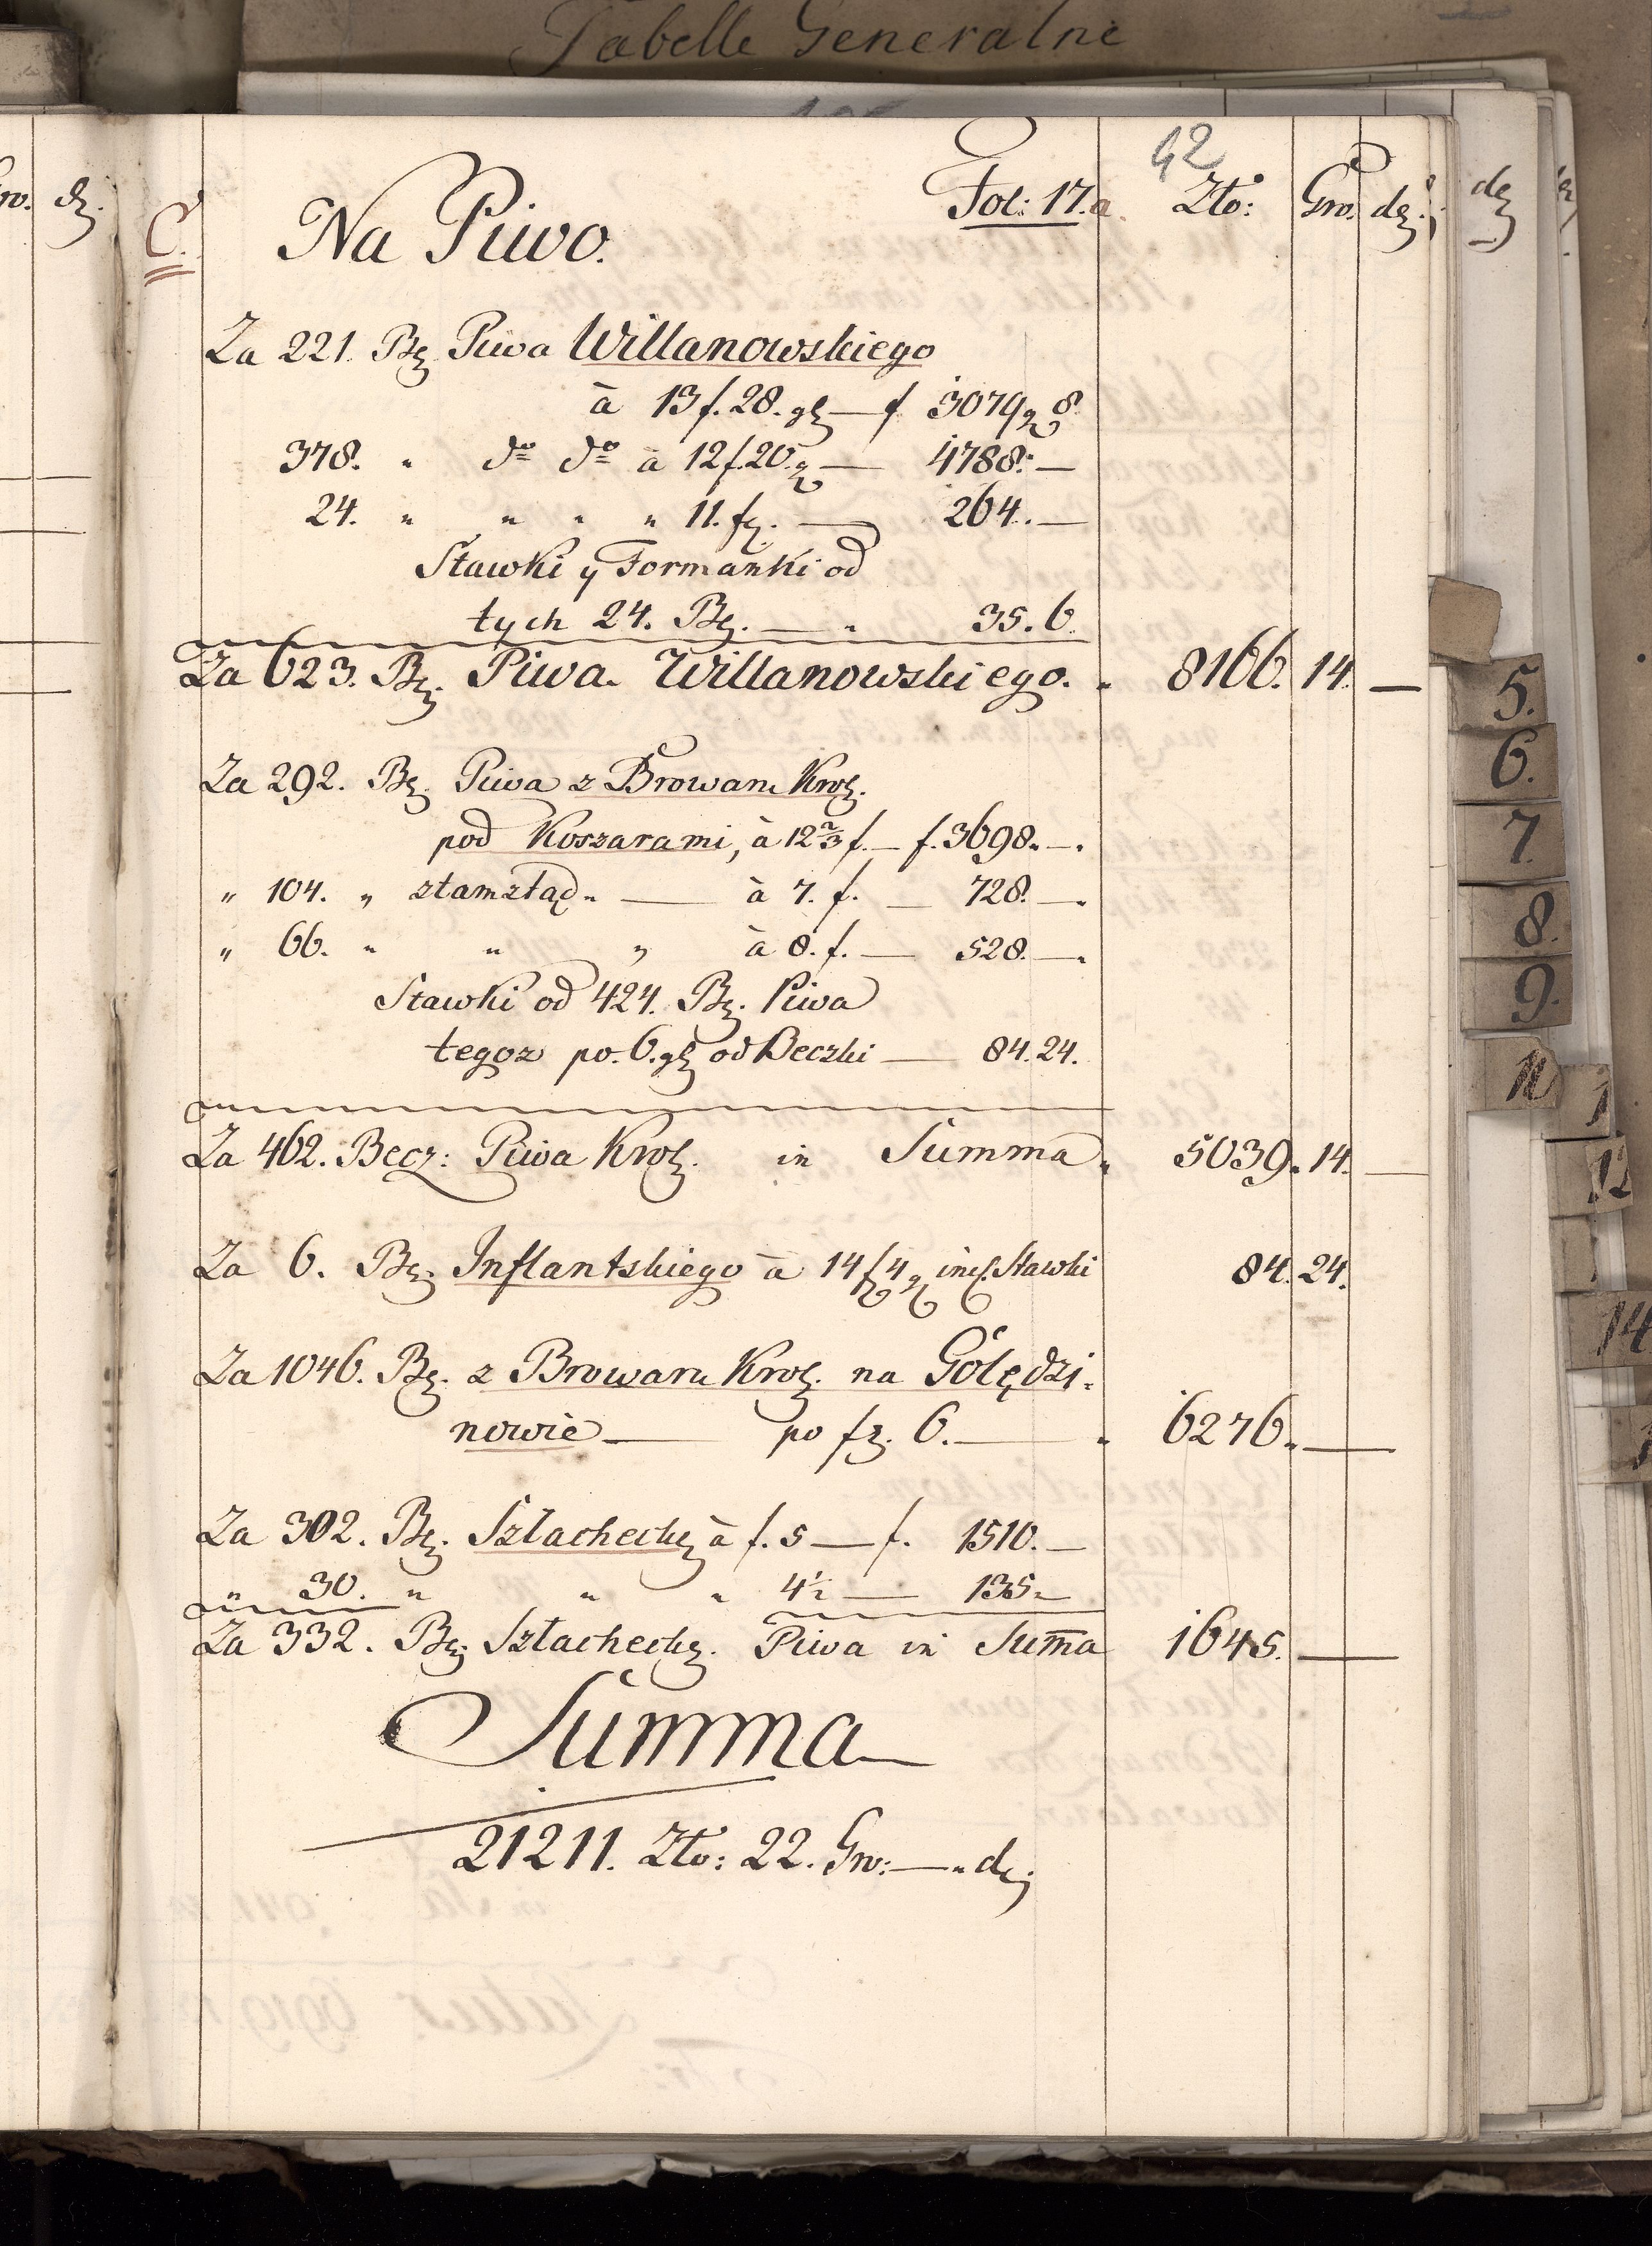 Tabelle Generalne
42
C. Na Piwo. Fol: 17.a. Zło: Gro. dz.
Za 221. Bz. Piwa Willanowskiego
à 13 f. 28. gz — f 3079 g 8.
378. " do do à 12 f. 20. g — 4788. —
24. " " " " 11. fz. — 264. —
Stawki y Formanki od
tych 24. Bz. — " 35. 6.
Za 623. Bz. Piwa Willanowskiego. " 8166. 14. —
Za 292. Bz. Piwa z Browaru Krolz.
pod Koszarami, à 12 2/3 f. — f. 3698. —
" 104. " ztamztąd " — à 7. f. — 728. —
" 66. " " " à 8. f. — 528. —
Stawki od 424. Bz. Piwa
tegoz po. 6. gz od Beczki — 84. 24.
Za 462. Becz: Piwa Krolz. in Summa " 5039. 14. —
Za 6. Bz. Inflantskiego à 14 fz 4 g incl. Stawki 84. 24.
Za 1046. Bz. z Browaru Krolz. na Golędzi-
nowie — po fz. 6. — " 6276. —
Za 302. Bz. Szlacheckz à f. 5 — f. 1510. —
" 30. " " " 4½ — 135 "
Za 332. Bz. Szlacheckz. Piwa in Sum̅a 1645. —
Summa
21211. Zło: 22. Gro: — " dz.
5.
6.
7.
8.
9.
10
12
14